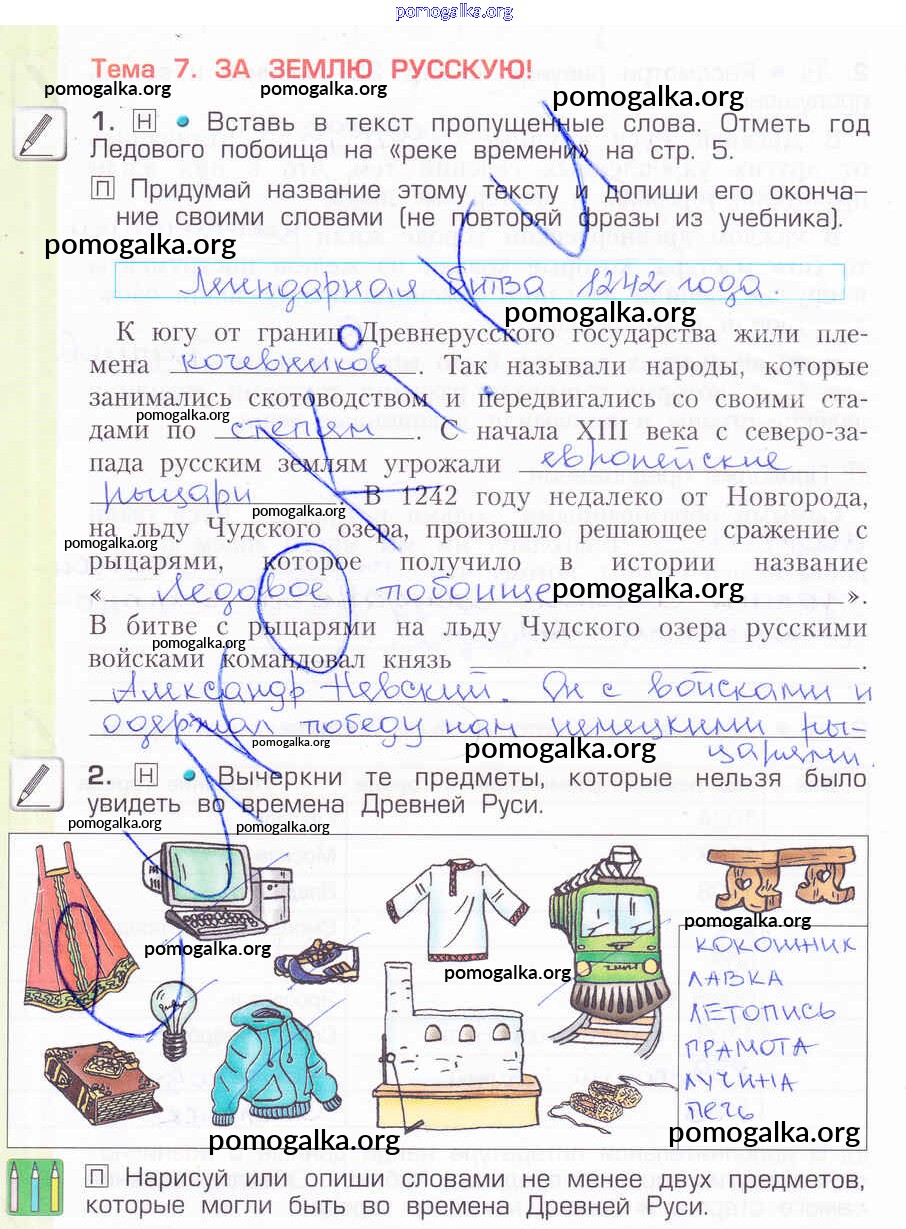 pomogalka.org
Тема 7. ЗА ЗЕМЛЮ РУССКУЮ!
pomogalka.org pomogalka.org pomogalka.org
1. Н • Вставь в текст пропущенные слова. Отметь год
Ледового побоища на «реке времени» на стр. 5.
П Придумай название этому тексту и допиши его оконча-
ние своими словами (не повторяй фразы из учебника).
pomogalka.org
Легендарная битва 1242 года.
pomogalka.org
К югу от границ Древнерусского государства жили пле-
мена кочевников. Так называли народы, которые
занимались скотоводством и передвигались со своими ста-
pomogalka.org
дами по степям. С начала XIII века с северо-за-
пада русским землям угрожали европейские
рыцари. В 1242 году недалеко от Новгорода,
pomogalka.org
на льду Чудского озера, произошло решающее сражение с
pomogalka.org
рыцарями, которое получило в истории название
« Ледовое побоище ».
pomogalka.org
В битве с рыцарями на льду Чудского озера русскими
pomogalka.org
войсками командовал князь
Александр Невский. Он с войсками и
одержал победу нан немецкими ры-
царями.
pomogalka.org pomogalka.org
2. Н • Вычеркни те предметы, которые нельзя было
увидеть во времена Древней Руси.
pomogalka.org pomogalka.org
pomogalka.org pomogalka.org
КОКОШНИК
pomogalka.org
ЛАВКА
ЛЕТОПИСЬ
ГРАМОТА
ЛУЧИНА
ПЕЧЬ
pomogalka.org pomogalka.org
П Нарисуй или опиши словами не менее двух предметов,
которые могли быть во времена Древней Руси.